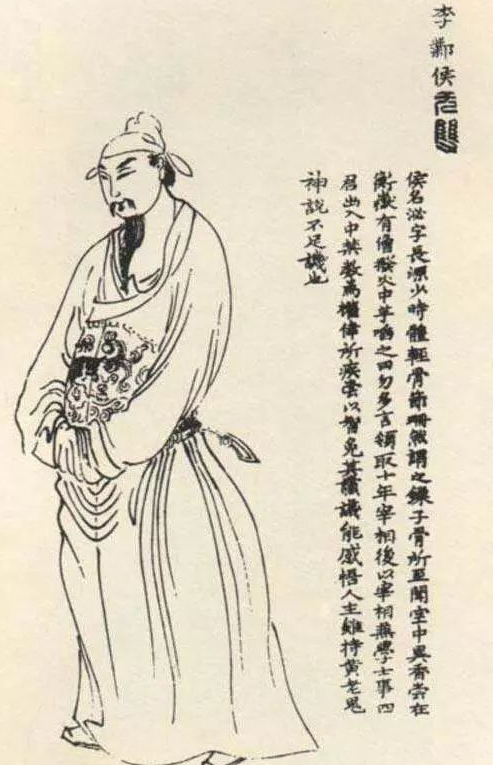 李鄴侯无雙
侯名泌字長源少時體輕骨節珊然謂之鎖子骨所至聞室中異香嘗在
衡嶽有僧撥火中芋啗之曰勿多言領取十年宰相後以宰相兼學士事四
君出入中禁數為權倖所疾常以智免其讜議能感悟人主雖持黄老鬼
神說不足譏也